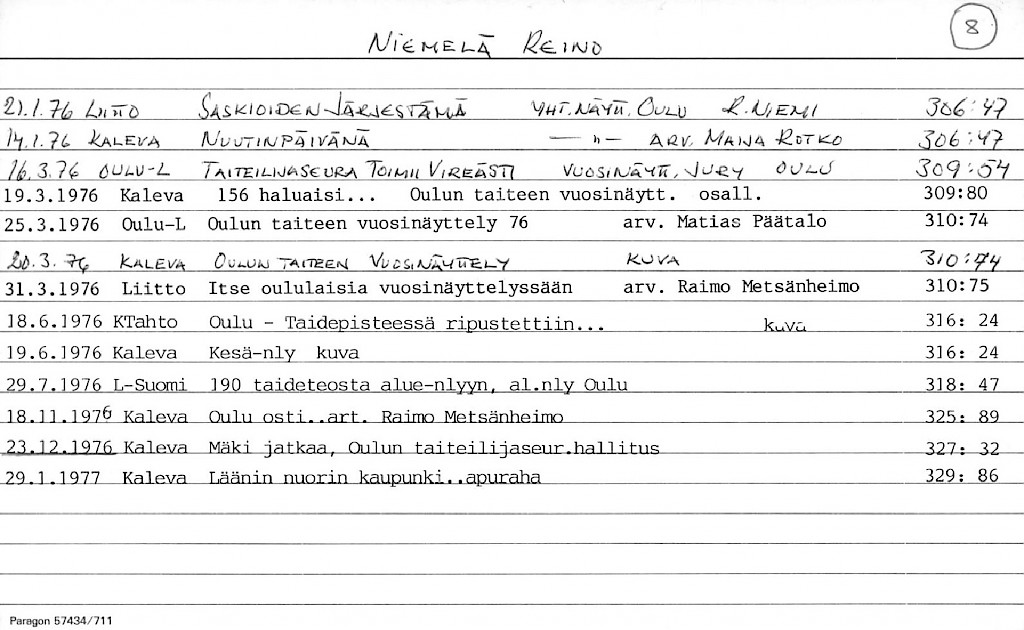 8
NIEMELÄ REINO
21.1.76 LIITTO SASKIOIDEN JÄRJESTÄMÄ YHT.NÄYTT. OULU R.NIEMI 306:47
14.1.76 KALEVA NUUTINPÄIVÄNÄ —"— ARV. MAIJA ROTKO 306:47
16.3.76 OULU-L TAITEILIJASEURA TOIMII VIREÄSTI VUOSINÄYTT, JURY OULU 309:54
19.3.1976 Kaleva 156 haluaisi... Oulun taiteen vuosinäytt. osall. 309:80
25.3.1976 Oulu-L Oulun taiteen vuosinäyttely 76 arv. Matias Päätalo 310:74
20.3.76 KALEVA OULUN TAITEEN VUOSINÄYTTELY KUVA 310:74
31.3.1976 Liitto Itse oululaisia vuosinäyttelyssään arv. Raimo Metsänheimo 310:75
18.6.1976 KTahto Oulu - Taidepisteessä ripustettiin... kuva 316: 24
19.6.1976 Kaleva Kesä-nly kuva 316: 24
29.7.1976 L-Suomi 190 taideteosta alue-nlyyn, al.nly Oulu 318: 47
18.11.1976 Kaleva Oulu osti..art. Raimo Metsänheimo 325: 89
23.12.1976 Kaleva Mäki jatkaa, Oulun taiteilijaseur.hallitus 327: 32
29.1.1977 Kaleva Läänin nuorin kaupunki..apuraha 329: 86
Paragon 57434/711